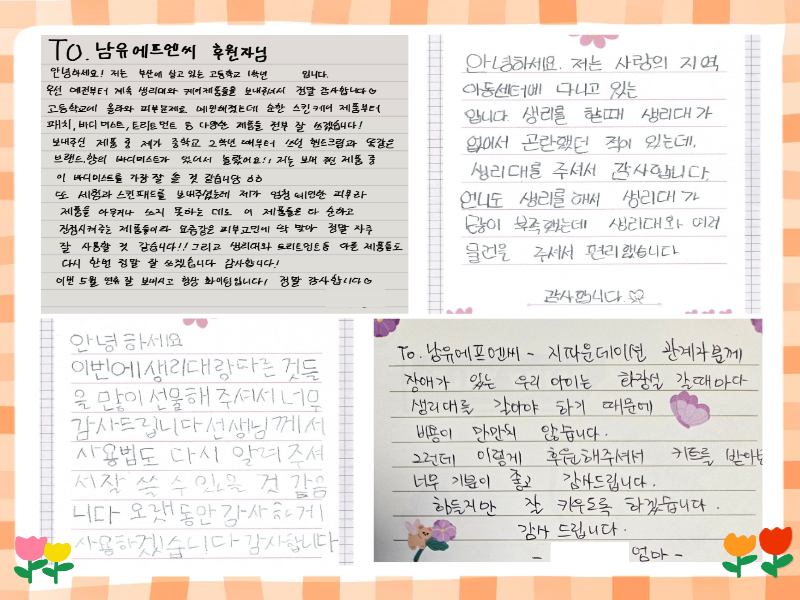 TO. 남유에프엔씨 후원자님
안녕하세요! 저는 부산에 살고 있는 고등학교 1학년 입니다.
우선 예전부터 계속 생리대와 케어제품들을 보내주셔서 정말 감사합니다♡
고등학교에 올라와 피부문제로 예민해졌는데 요한 스킨케어 제품부터
패치, 바디미스트, 트리트먼트 등 다양한 제품을 전부 잘 쓰겠습니다!
보내주신 제품 중 제가 중학교 2학년 때부터 쓰던 핸드크림과 똑같은
브랜드, 향의 바디미스트가 있어서 놀랐어요!! 저는 보내 주신 제품 중
이 바디미스트를 가장 잘 쓸 것 같습니다 ㅎㅎ
또 세럼과 스킨패드를 보내주셨는데 제가 엄청 예민한 피부라
제품을 아무거나 쓰지 못하는 데도 이 제품들은 다 순하고
진정시켜주는 제품들이라 요즘같은 피부고민에 딱 맞아 정말 자주
잘 사용할 것 같습니다!! 그리고 생리대와 트리트먼트등 다른 제품들도
다시 한번 정말 잘 쓰겠습니다 감사합니다!
이번 5월 연휴 잘 보내시고 항상 화이팅입니다! 정말 감사합니다♡
안녕하세요. 저는 사랑의 지역
아동센터에 다니고 있는
입니다 생리를 할때 생리대가
없어서 곤란했던 적이 있는데,
생리대를 주셔서 감사합니다.
언니도 생리를 해서 생리대가
많이 부족했는데 생리대와 여러
물건을 주셔서 편리했습니다
감사합니다.♡
안녕하세요
이번에 생리대랑 다른 것들
을 많이 선물해 주셔서 너무
감사드립니다 선생님께서
사용법도 다시 알려주셔
서 잘 쓸 수 있을 것 같습
니다 오랫동안 감사하게
사용하겠습니다 감사합니다
To. 남유에프엔씨 - 지파운데이션 관계자분께
장애가 있는 우리 아이는 화장실 갈때마다
생리대를 갈아야 하기 때문에
비용이 만만치 않습니다.
그런데 이렇게 후원해주셔서 키트를 받아
너무 기분이 좋고 감사드립니다.
힘들지만 잘 키우도록 하겠습니다.
감사 드립니다.
- 엄마 -